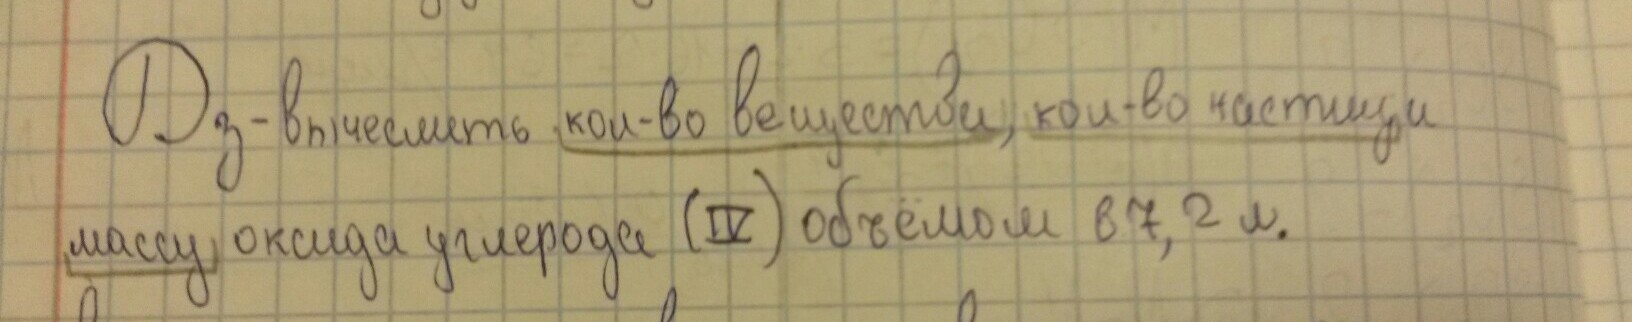 ① з-вычеслить кол-во вещества, кол-во частиц и
массу оксида углерода (IV) объёмом в 7,2 л.